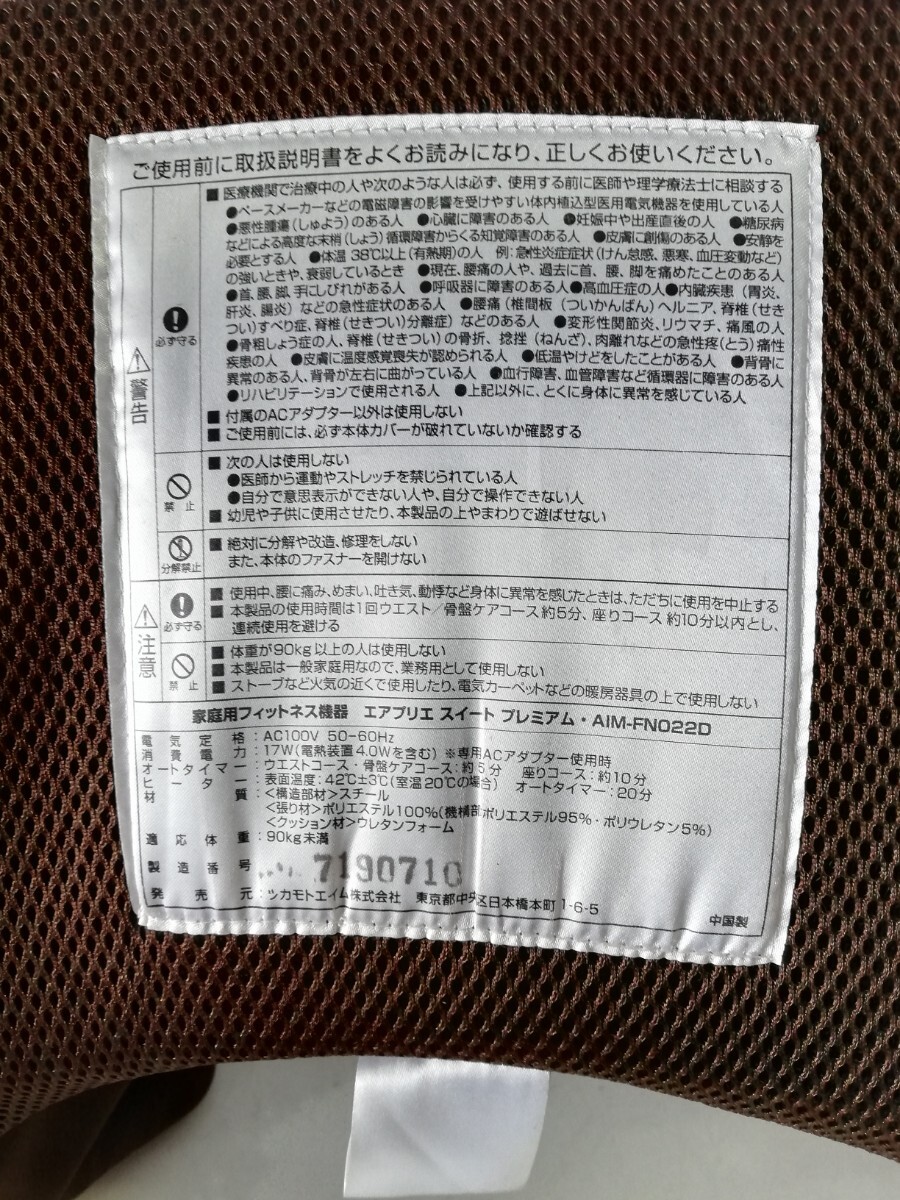 ご使用前に取扱説明書をよくお読みになり、正しくお使いください。
警告
必ず守る
■ 医療機関で治療中の人や次のような人は必ず、使用する前に医師や理学療法士に相談する
●ペースメーカーなどの電磁障害の影響を受けやすい体内植込型医用電気機器を使用している人
●悪性腫瘍(しゅよう)のある人 ●心臓に障害のある人 ●妊娠中や出産直後の人 ●糖尿病
などによる高度な末梢(しょう)循環障害からくる知覚障害のある人 ●皮膚に創傷のある人 ●安静を
必要とする人 ●体温 38℃以上(有熱期)の人 例:急性炎症症状(けん怠感、悪寒、血圧変動など)
の強いときや、衰弱しているとき ●現在、腰痛の人や、過去に首、腰、脚を痛めたことのある人
●首、腰、脚、手にしびれがある人 ●呼吸器に障害のある人 ●高血圧症の人 ●内臓疾患(胃炎、
肝炎、腸炎)などの急性症状のある人 ●腰痛(椎間板(ついかんばん)ヘルニア、脊椎(せき
つい)すべり症、脊椎(せきつい)分離症)などのある人 ●変形性関節炎、リウマチ、痛風の人
●骨粗しょう症の人、脊椎(せきつい)の骨折、捻挫(ねんざ)、肉離れなどの急性疼(とう)痛性
疾患の人 ●皮膚に温度感覚喪失が認められる人 ●低温やけどをしたことがある人 ●背骨に
異常のある人、背骨が左右に曲がっている人 ●血行障害、血管障害など循環器に障害のある人
●リハビリテーションで使用される人 ●上記以外に、とくに身体に異常を感じている人
■ 付属のACアダプター以外は使用しない
■ ご使用前には、必ず本体カバーが破れていないか確認する
禁止
■ 次の人は使用しない
●医師から運動やストレッチを禁じられている人
●自分で意思表示ができない人や、自分で操作できない人
■ 幼児や子供に使用させたり、本製品の上やまわりで遊ばせない
分解禁止
■ 絶対に分解や改造、修理をしない
また、本体のファスナーを開けない
注意
必ず守る
■ 使用中、腰に痛み、めまい、吐き気、動悸など身体に異常を感じたときは、ただちに使用を中止する
■ 本製品の使用時間は1回ウエスト/骨盤ケアコース 約5分、座りコース 約10分以内とし、
連続使用を避ける
禁止
■ 体重が90kg以上の人は使用しない
■ 本製品は一般家庭用なので、業務用として使用しない
■ ストーブなど火気の近くで使用したり、電気カーペットなどの暖房器具の上で使用しない
家庭用フィットネス機器 エアプリエ スイート プレミアム・AIM-FN022D
電気定格:AC100V 50-60Hz
消費電力:17W(電熱装置4.0Wを含む) ※専用ACアダプター使用時
オートタイマー:ウエストコース・骨盤ケアコース:約5分 座りコース:約10分
ヒーター:表面温度:42℃±3℃(室温20℃の場合) オートタイマー:20分
材質:<構造部材>スチール
<張り材>ポリエステル100%(機構部ポリエステル95%・ポリウレタン5%)
<クッション材>ウレタンフォーム
適応体重:90kg未満
製造番号 7190710
発売元:ツカモトエイム株式会社 東京都中央区日本橋本町1-6-5
中国製